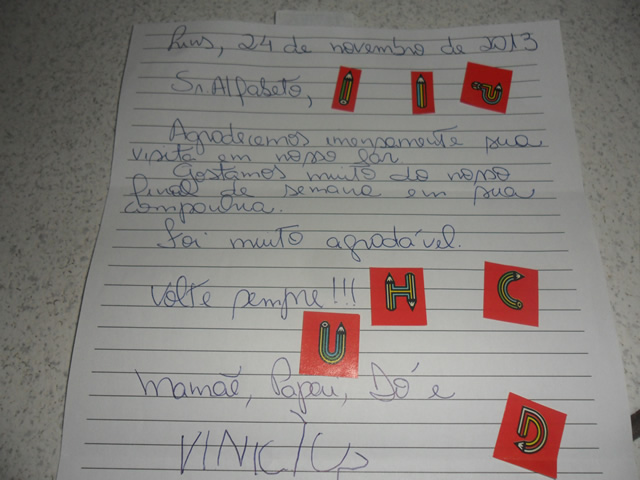 Lins, 24 de novembro de 2013
Sr. Alfabeto, I I U
Agradecemos imensamente sua
visita em nosso lar
Gostamos muito do nosso
final de semana em sua
companhia.
Foi muito agradável.
Volte sempre!!! H C
U
Mamãe, Papai, Dó e
D
VINICIUS